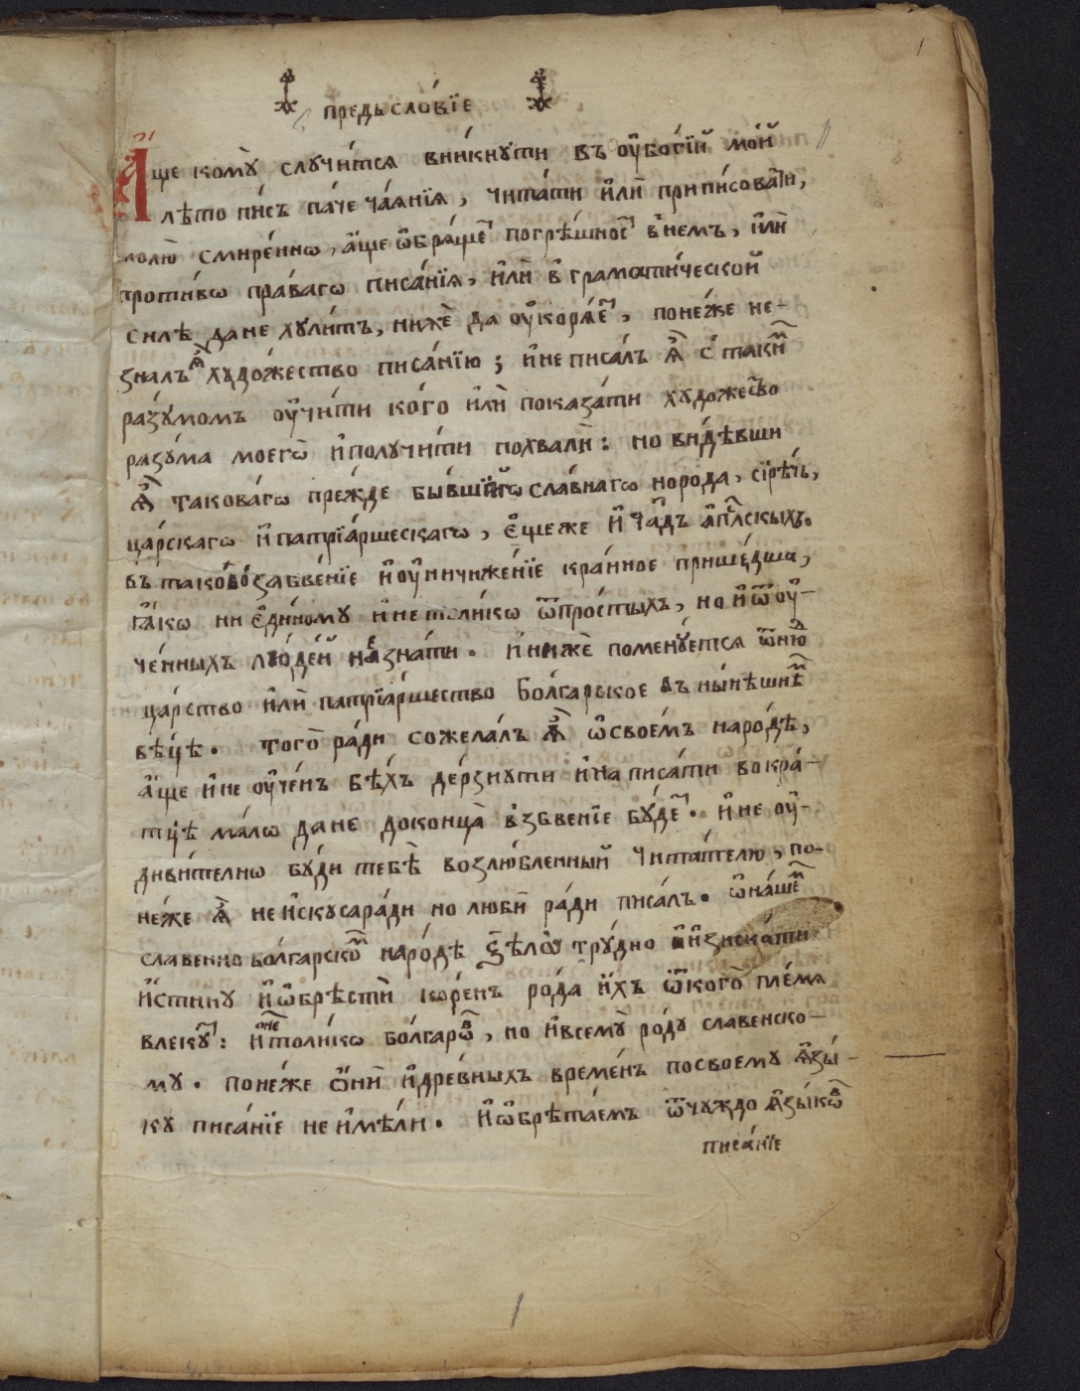 1
предъсло́вїе
А҆́ще комꙋ̀ слꙋчи́тсѧ вни́кнꙋти въ оу҆бо́гїй мо́й
лѣ́топи́съ па́че ча́ѧнїѧ, чита́ти и҆лѝ припи́сова́ти,
молю̀ смире́ннѡ, а҆́ще ѡ҆брѧ́щеⷮ погрѣ́шносⷮ в̾не́мъ, и҆лѝ
проти́вѡ пра́вагѡ писа́нїѧ, и҆лѝ в̾ грамати́ческой
силѣ да не хꙋли́тъ, нижѐ да оу҆корѧ́еⷮ, поне́же не-
зналъ ѧ҆̀ хꙋдо́жество писа́нїю; и҆ не писа́лъ ѧ҆̀ с̾ таки́ⷨ
ра́зꙋмомъ оу҆чи́ти кого̀ и҆лѝ показа́ти хꙋдожеⷭ҇во
разꙋ́ма моегѡ̀ и҆ получи́ти похвалѝ: но ви́дѣвши
ѧ҆̀ такова́гѡ пре́жде бы́вшїйгѡ сла́внагѡ норода, сїрѣ́чъ,
ца́рскагѡ и҆ патрїа́ршескагѡ, є҆́щеже и҆ ча́дъ а҆пⷭ҇лскыхъ.
въ тако́во забве́нїе и҆ оу҆ничиже́нїе кра́йное прише́дша,
ꙗ҆́кѡ ни є҆ди́номꙋ и҆ не толи́кѡ ѿпросты́хъ, но и҆ ѿ оу҆-
че́нныхъ люде́й не зна́ти. и҆ нижѐ поменꙋ́етсѧ ѿ ню́дꙋ
ца́рство и҆лѝ патрїа́ршество Болга́рыкое въ ны́нѣшнѣⷨ
вѣ́цѣ. того̀ ра́ди сожела́лъ ѧ҆̀ ѡ҆ свое́мъ наро́дѣ,
а҆́ще и҆ не оу҆че́нъ бѣ́хъ де́рзнꙋти и҆ написа́ти вокра́-
тцѣ ма́лѡ да не доконца̀ в̾забвенїе бꙋ́деⷮ. и҆ не оу҆-
диви́телнѡ бꙋ́ди тебѣ̀ возлю́бленный чита́телю, по-
не́же ѧ҆̀ не и҆скꙋса ра́ди но любѝ ра́ди писа́лъ. ѡ҆ на́шеⷨ
славенно болгарскоⷨ наро́дѣ ѕѣлѡ̀ трꙋ́дно и҆зиска́ти
и҆́стинꙋ и҆ ѡ҆брѣстѝ ко́ренъ ро́да и҆́хъ ѿкогѡ̀ пле́мѧ
влекꙋ́ⷮ: и҆ не толи́кѡ бо́лгарѡⷡ, но и҆ всемꙋ̀ ро́дꙋ славенско-
мꙋ. поне́же ѻ҆нѝ и҆ дре́вныхъ време́нъ посвоемꙋ ѧ҆зы́-
кꙋ писа́нїе не и҆мѣ́ли. и҆ ѡ҆брѣта́емъ ѿ чꙋ́ждо ѧ҆зы́кѡⷡ
писа́нїе